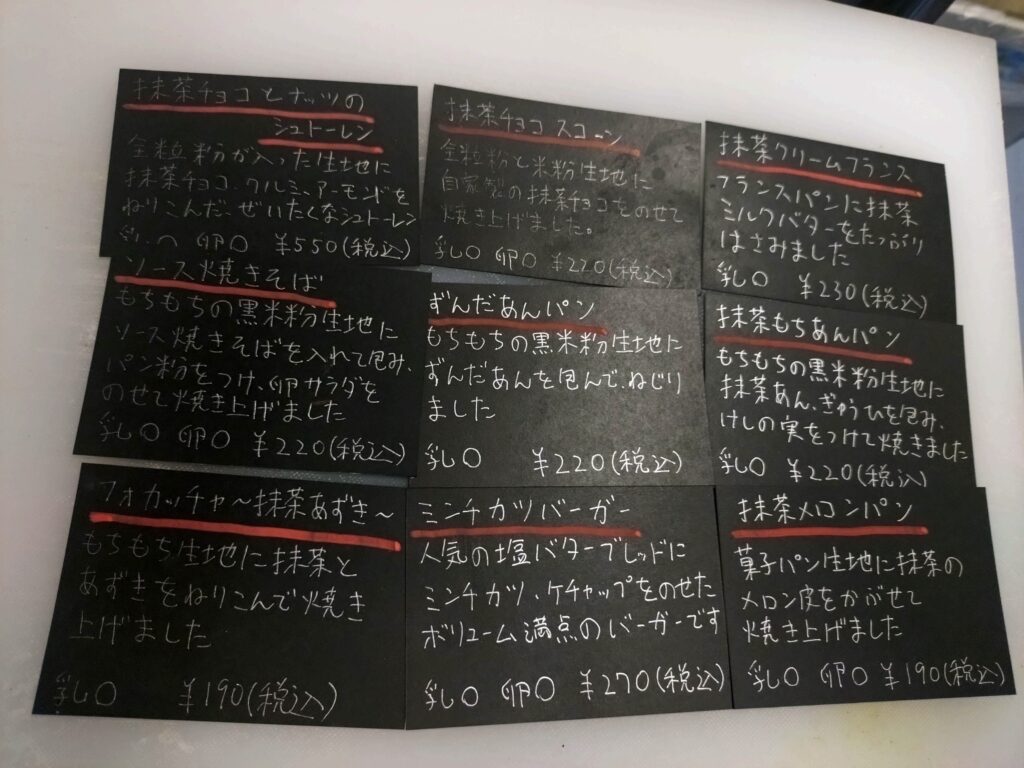 抹茶チョコとナッツの
シュトーレン
全粒粉が入った生地に
抹茶チョコ、クルミ、アーモンドを
ねりこんだ、ぜいたくなシュトーレン
乳〇 卵〇 ¥550(税込)
抹茶チョコスコーン
全粒粉と米粉生地に
自家製の抹茶チョコをのせて
焼き上げました。
乳〇 卵〇 ¥220(税込)
抹茶クリームフランス
フランスパンに抹茶
ミルクバターをたっぷり
はさみました
乳〇 ¥230(税込)
ソース焼きそば
もちもちの黒米粉生地に
ソース焼きそばを入れて包み、
パン粉をつけ、卵サラダを
のせて焼き上げました
乳〇 卵〇 ¥220(税込)
ずんだあんパン
もちもちの黒米粉生地に
ずんだあんを包んで、ねじり
ました
乳〇 ¥220(税込)
抹茶もちあんパン
もちもちの黒米粉生地に
抹茶あん、ぎゅうひを包み、
けしの実をつけて焼きました
乳〇 ¥220(税込)
フォカッチャ〜抹茶あずき〜
もちもち生地に抹茶と
あずきをねりこんで焼き
上げました
乳〇 ¥190(税込)
ミンチカツバーガー
人気の塩バターブレッドに
ミンチカツ、ケチャップをのせた
ボリューム満点のバーガーです
乳〇 卵〇 ¥270(税込)
抹茶メロンパン
菓子パン生地に抹茶の
メロン皮をかぶせて
焼き上げました
乳〇 卵〇 ¥190(税込)